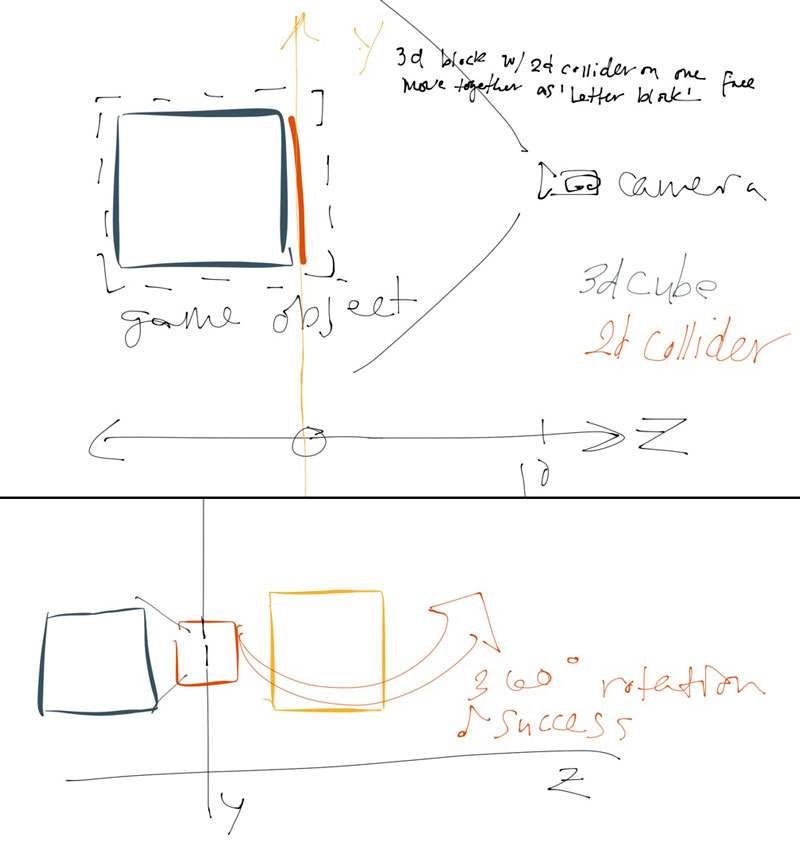 y
3d block w/ 2d collider on one face
move together as 'letter block'
camera
3d cube
2d collider
game object
Z
10
360° rotation
♪ success
Z
y